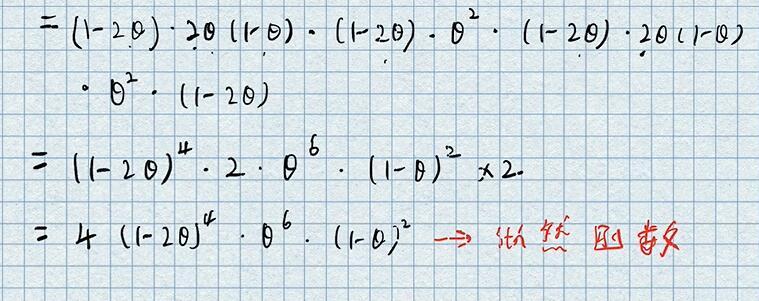 = (1-2θ) · 2θ (1-θ) · (1-2θ) · θ² · (1-2θ) · 2θ (1-θ)
· θ² · (1-2θ)
= (1-2θ)⁴ · 2 · θ⁶ · (1-θ)² × 2.
= 4 (1-2θ)⁴ · θ⁶ · (1-θ)² → 然 函数